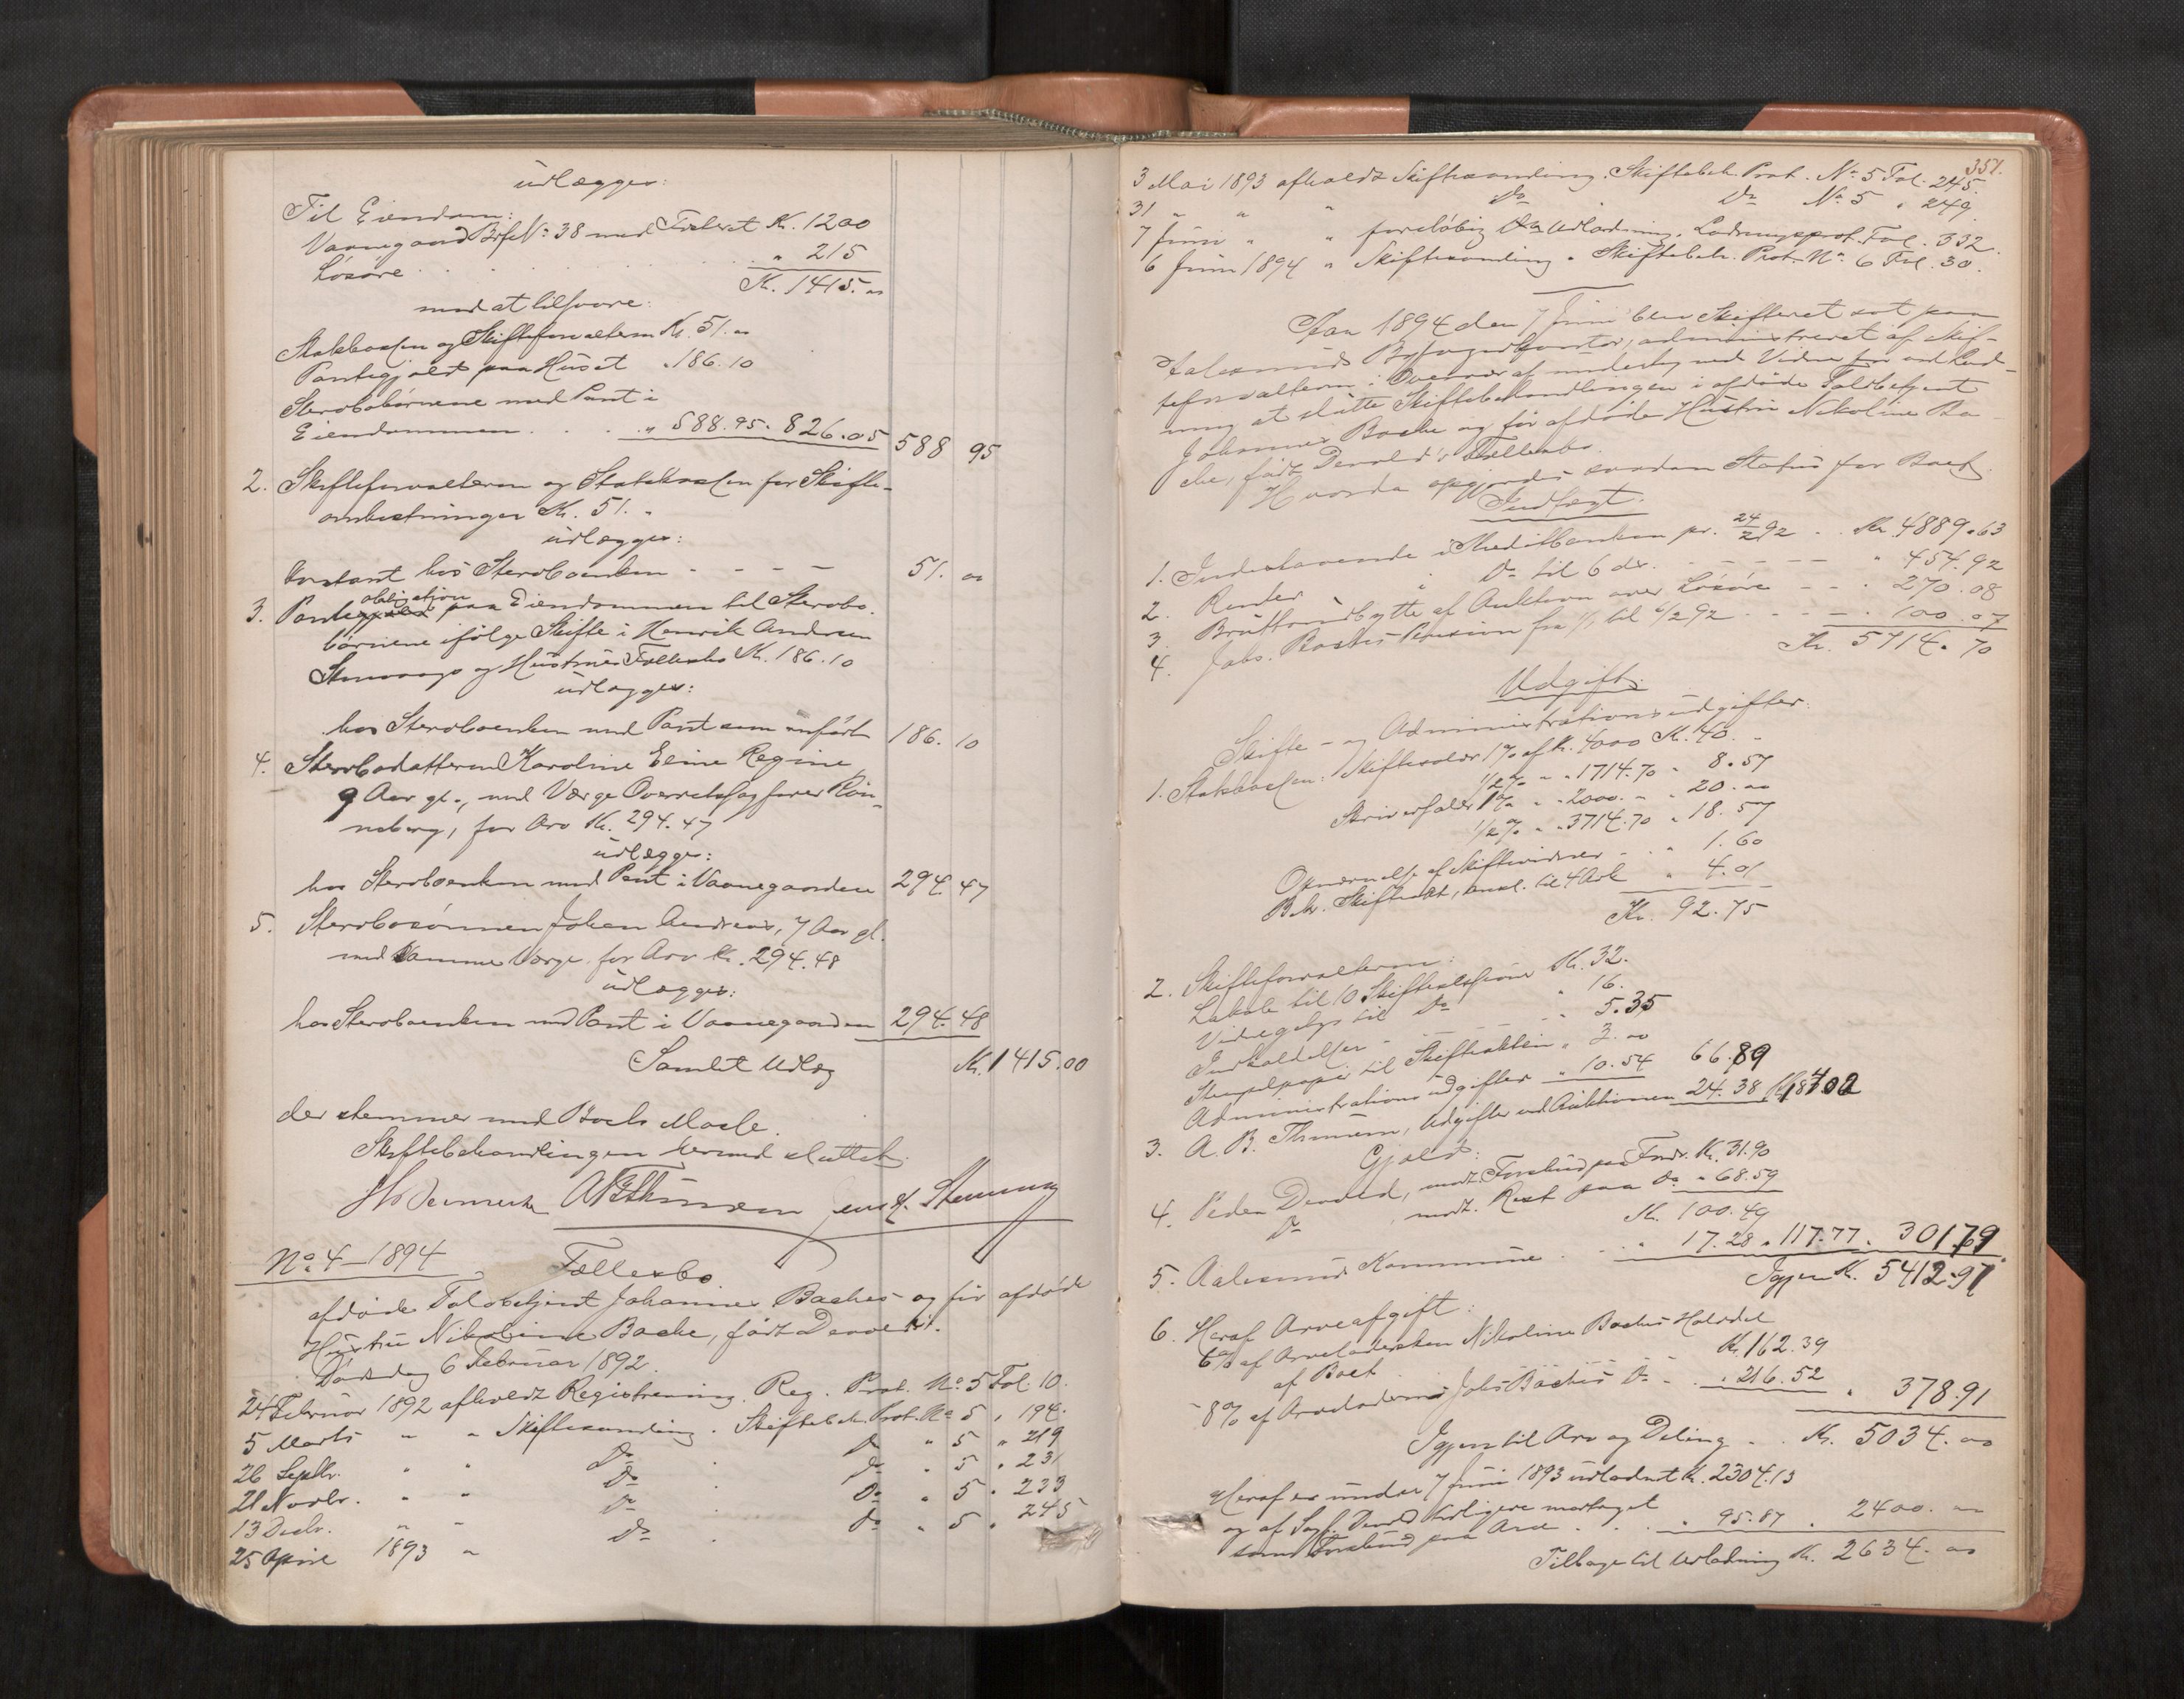 udlægges:
Til Eiendom:
Vaanegaard Brfs No 38 med Forteret Kr. 1200
Løsøre . . . . . . . . . " 215
Kr. 1415. "
mod at tilsvare:
Statskassen og Skifteforvalteren Kr. 51. "
Pantegjæld paa Huset " 186.10
Sterbobørnene med Pant i
Eiendommen . . . " 588.95. 826.05 588 95
2. Skifteforvalteren og Statskassen for Skifte-
omkostninger Kr. 51. "
udlægges:
Kontant hos Sterboenken - - - - 51. "
3. Panteobligation paa Eiendommen til Sterbo-
børnene ifølge Skifte i Henrik Andersen
og Hustrues Fællesbo Kr. 186.10
udlægges:
hos Sterboenken med Pant som anført 186. 10
4. Sterbodatteren Karoline Eline Regine
9 Aar gl., med Værge Overretssagfører Røn-
neberg, for Arv Kr. 294.47
udlægges:
hos Sterboenken med Pant i Vaanegaarden 294. 47
5. Sterbosønnen Johan Andreas, 7 Aar gl.
med samme Værge, for Arv Kr. 294.48
udlægges:
hos Sterboenken med Pant i Vaanegaarden 294. 48
Samlet Udlæg Kr. 1415.00
der stemmer med Boets Masse.
Skiftebehandlingen hermed sluttet.
No 4 - 1894 Fællesbo
afdøde Toldbetjent Johannes Backes og før afdøde
Hustru Nikoline Backe, født Devold.
Dødsdag 6 Februar 1892.
24 Februar 1892 afholdt Registrering. Reg. Prot. No 5 Fol. 10.
5 Marts " " Skiftesamling. Skiftebeh. Prot. No 5 " 194.
26 Septbr. " " Do Do " 5 " 219
21 Novbr. " " Do Do " 5 " 231
13 Decbr. " " Do Do " 5 " 233
25 April 1893 " Do Do " 5 " 245
351.
3 Mai 1893 afholdt Skiftesamling. Skiftebeh. Prot. No 5 Fol. 245.
31 " " " Do Do No 5 " 249.
7 Juni " " foreløbig Udlodning. Lodningsprot. Fol. 332.
6 Juni 1894 " Skiftesamling. Skiftebeh. Prot. No 6 Fol. 30.
Aar 1894 den 7 Juni blev Skifteret sat paa
Aalesunds Byfogedkontor, administreret af Skif-
teforvalteren i Overvær af undertegnede Vidner for ved Lod-
ning at slutte Skiftebehandlingen i afdøde Toldbetjent
Johannes Backe og før afdøde Hustru Nikoline Ba-
cke, født Devold's Fællesbo.
Hvorda opgjordes saadan Status for Boet
Indtægt.
1. Indestaaende i Kreditbanken pr. 24/2 92 . . Kr. 4889.63
2. Renter " Do til 6 ds. - - - - " 454.92
3. Bruttoudbytte af Auktion over Løsøre - - - " 270.08
4. Johs. Backes Pension fra 1/1 til 6/2 92 - - - " 100.07
Kr. 5714.70
Udgift:
Skifte- og Administrationsudgifter:
1. Statskassen: Skiftesalær 1% af Kr. 4000 Kr. 40. -
1/2% " " 1714.70 " 8.57
Skriversalær 1% " " 2000. - " 20. "
1/2% " " 3714.70 " 18.57
Opnævnelse af Skiftevidner - . " 1.60
Bekr. Skifteakt, ansl. til 4 Ark " 4.01
Kr. 92.75
2. Skifteforvalteren:
Lokale til 10 Skiftesessioner Kr. 32.
Vidnegebyr til Do " 16.
Indkaldelser - - - - " 5.35
Stempelpapir til Skifteakten " 3. "
Administrationsudgifter " 10.54 66.89
3. A. B. Thimem, Udgifter ved Auktionen 24.38 Kr. 184.02
Gjæld:
4. Peder Devold, modt. Forskud paa Fordr. Kr. 31.90
Do , modt. Rest paa Do " 68.59
Kr. 100.49
5. Aalesunds Kommune . . . " 17.28 " 117.77 " 301.79
Igjen Kr. 5412.91
6. Heraf Arveafgift:
6% af Arveladersken Nikoline Backes Halvdel
af Boet Kr. 162.39
- 8% af Arveladeren Johs. Backes Do - " 216.52 " 378.91
Igjen til Arv og Deling . . Kr. 5034. "
Heraf er under 7 Juni 1893 udloddet Kr. 2304.13
og af Devold tidligere modtaget
som Forskud paa Arv . . " 95.87 " 2400. "
Tilbage til Udlodning Kr. 2634. "